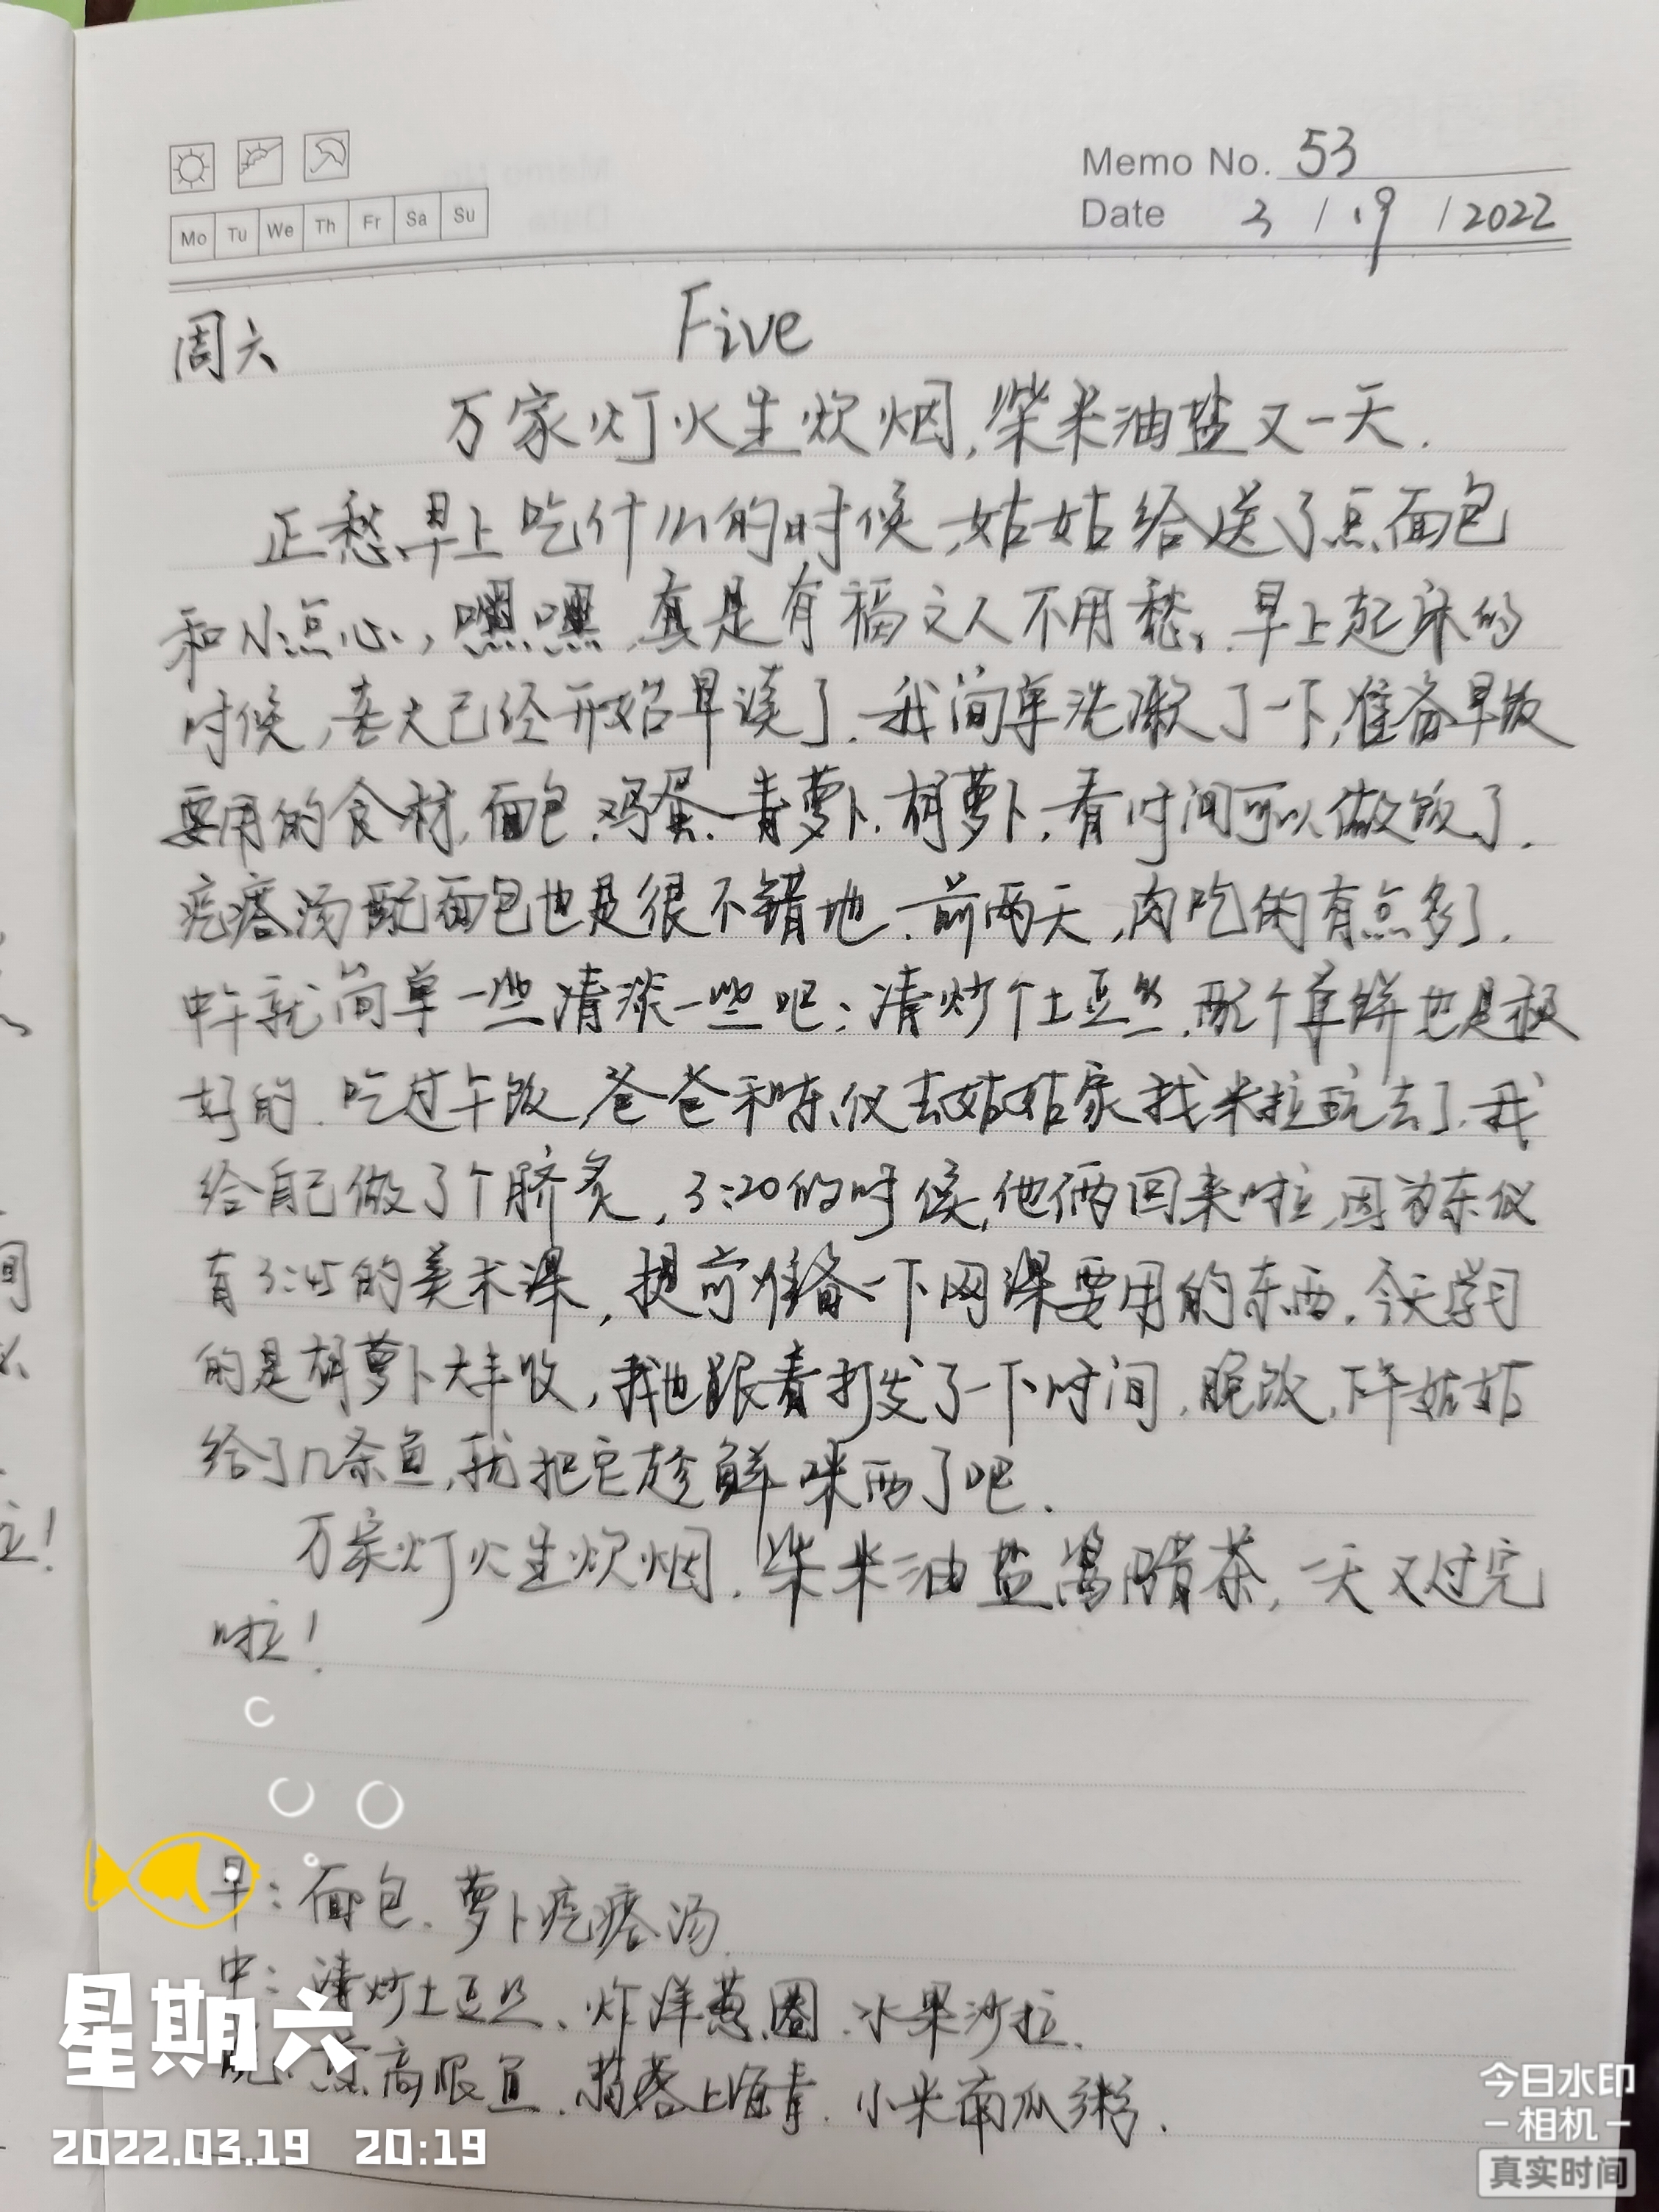 Memo No. 53
Mo Tu We Th Fr Sa Su
Date 3 / 19 / 2022
周六 Five
万家灯火生炊烟,柴米油盐又一天.
正愁早上吃什么的时候,姑姑给送了点面包
和小点心,嘿嘿,真是有福之人不用愁,早上起床的
时候,袁大已经开始早读了.我简单洗漱了一下,准备早饭
要用的食材,面包.鸡蛋.青萝卜.胡萝卜,看时间可以做饭了.
疙瘩汤配面包也是很不错地.前两天,肉吃的有点多了.
中午就简单一些清淡一些吧;清炒个土豆丝,配个单饼也是极
好的.吃过午饭,爸爸和东仪去姑姑家找米拉玩去了.我
给自己做了个脐灸,3:20的时候,他俩回来啦,因为东仪
有3:45的美术课,提前准备一下网课要用的东西.今天学习
的是胡萝卜大丰收,我也跟着打发了一下时间.晚饭,下午姑姑
给了几条鱼,我把它趁鲜咪西了吧.
万家灯火生炊烟.柴米油盐酱醋茶,一天又过完
啦!
早:面包.萝卜疙瘩汤.
中:清炒土豆丝、炸洋葱圈.水果沙拉.
高眼鱼.蒜蓉上海青.小米南瓜粥.
间
拉!
星期六
2022.03.19 20:19
今日水印
相机
真实时间